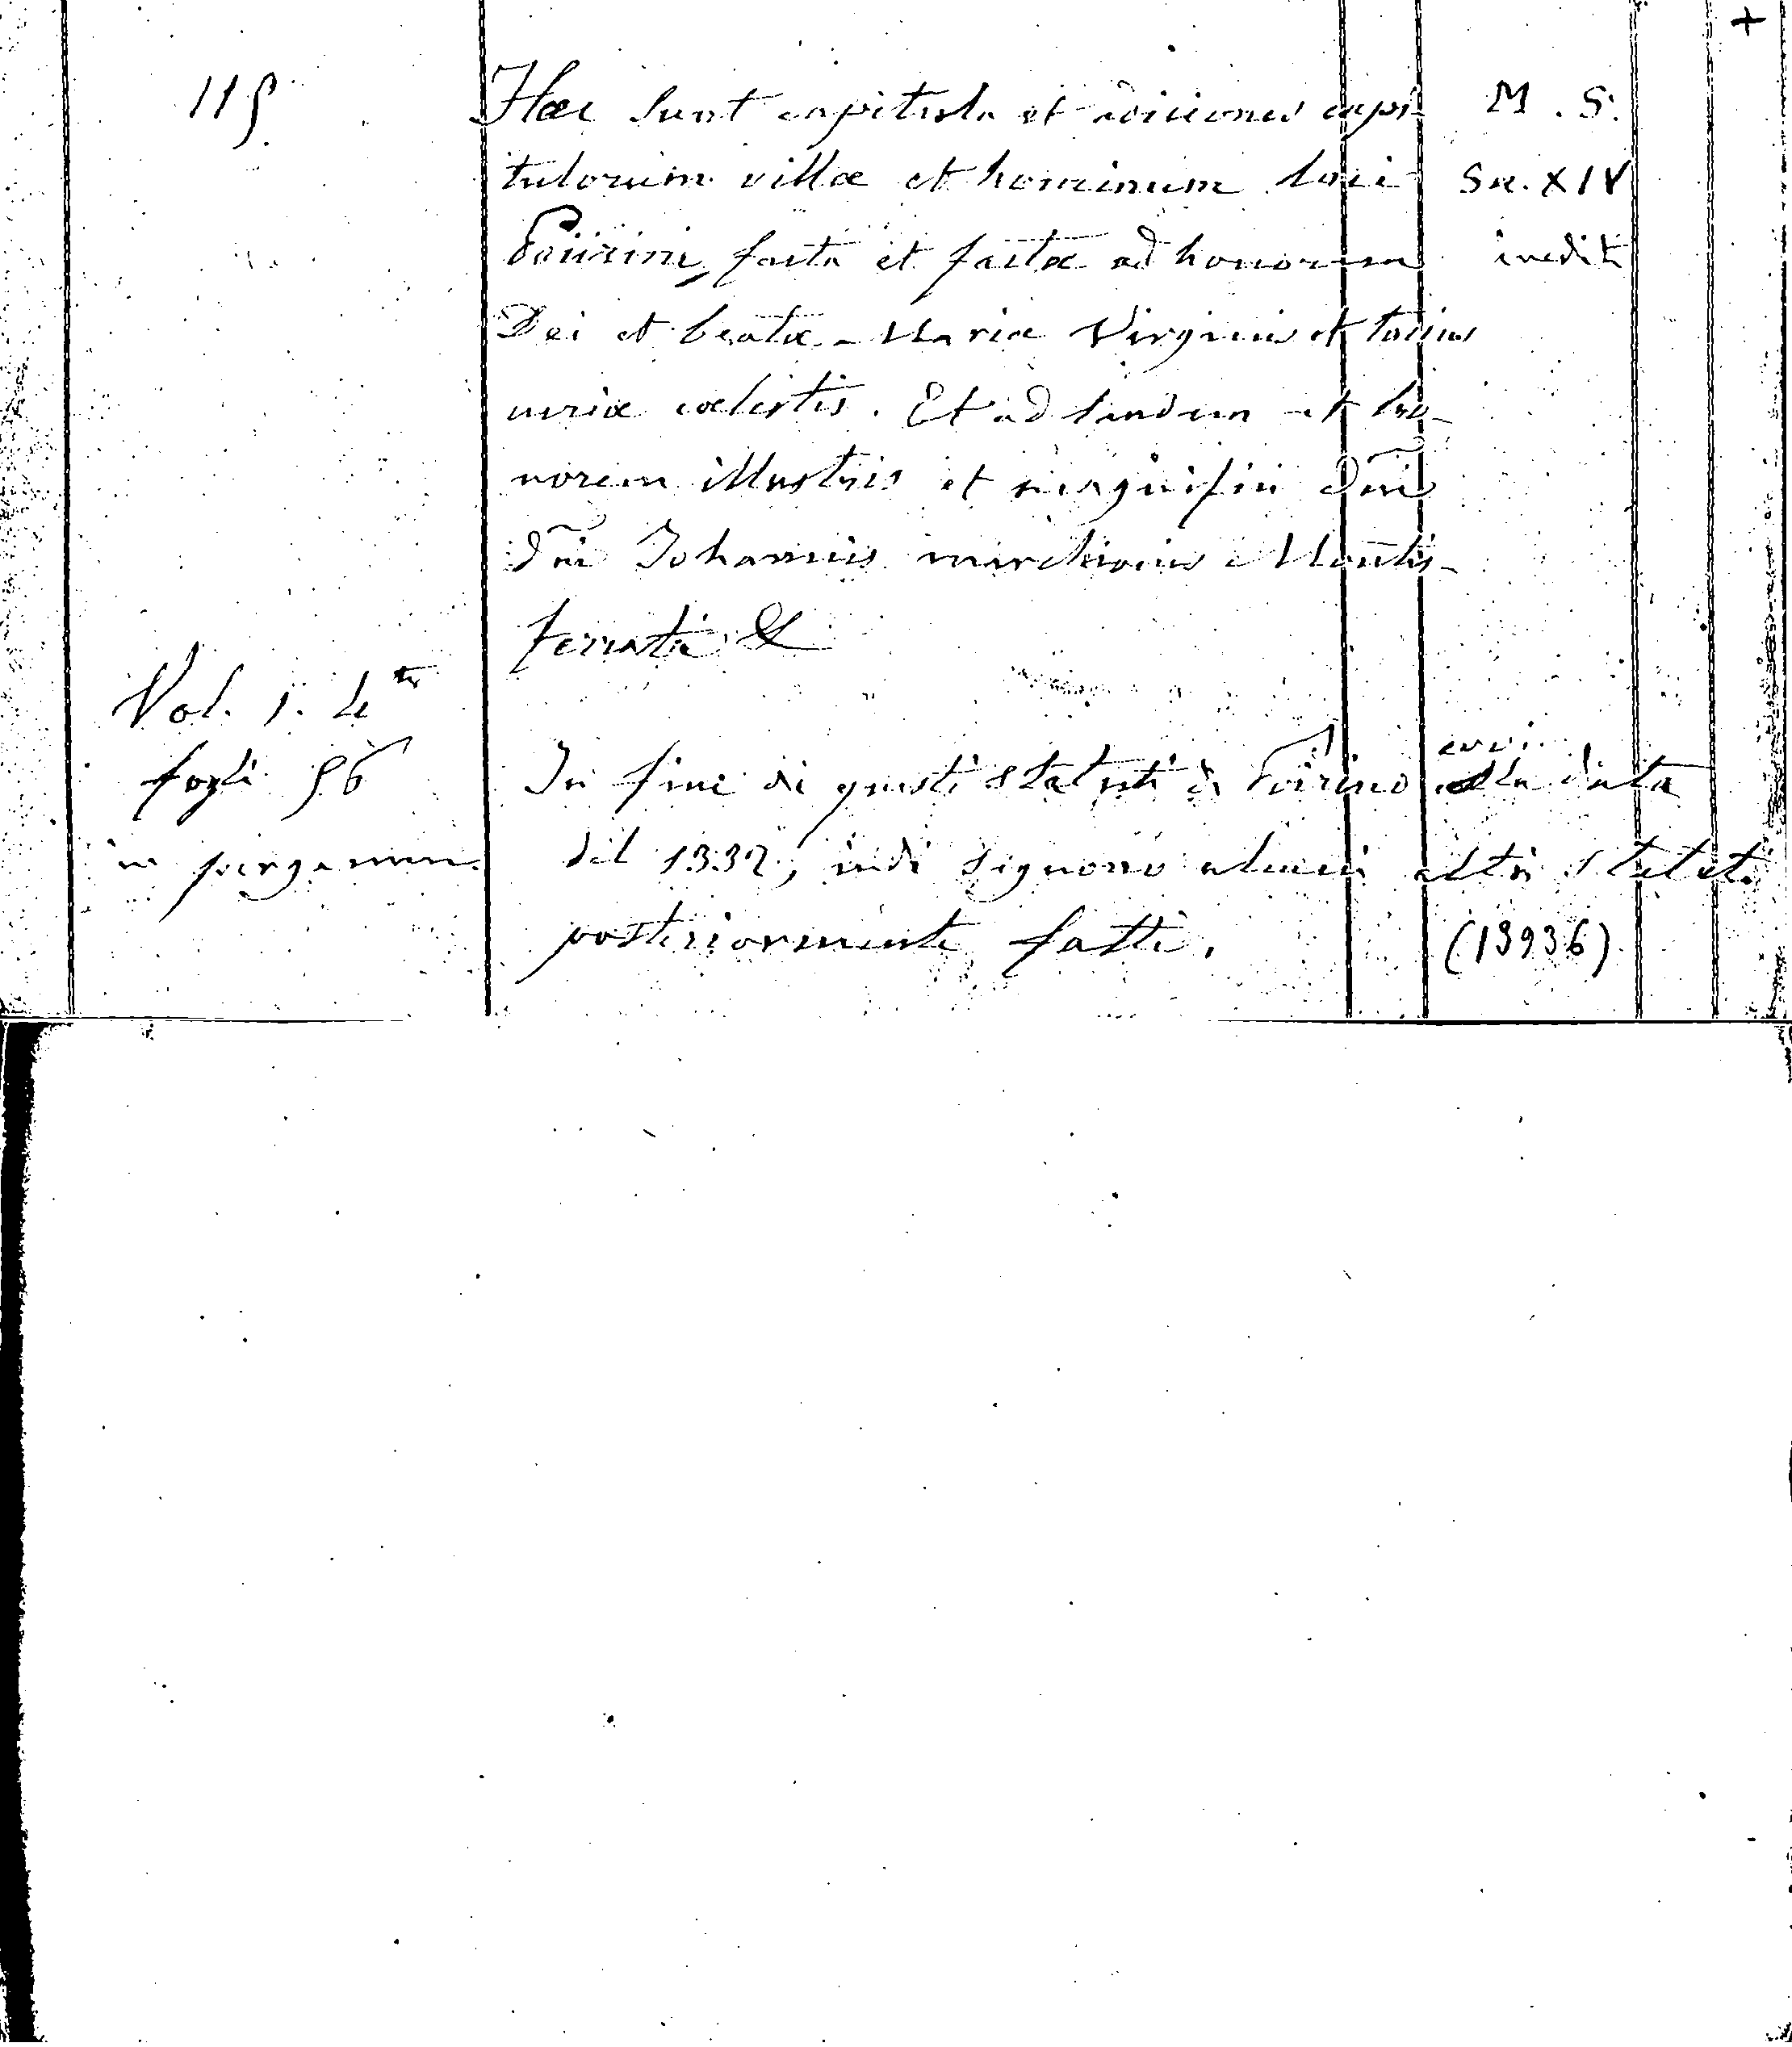 +
115.
Hæc sunt capitula et adiciones capi-
tulorum villæ et hominum loci
Poiirini, facta et factæ ad honorem
Dei et beatæ Mariæ Virginis et totius
curiæ cœlestis. Et ad laudem et ho-
norem illustris et magnifici Dni
dni Johannis marchionis Montis-
ferrati &
M. S.
Sec. XIV
inediti
Vol. 1. 4to
fogli 56
in pergamen.
In fine di questi Statuti di Poirino evvi la data
del 1332, indi seguono alcuni altri Statuti
posteriormente fatti.
(13936)